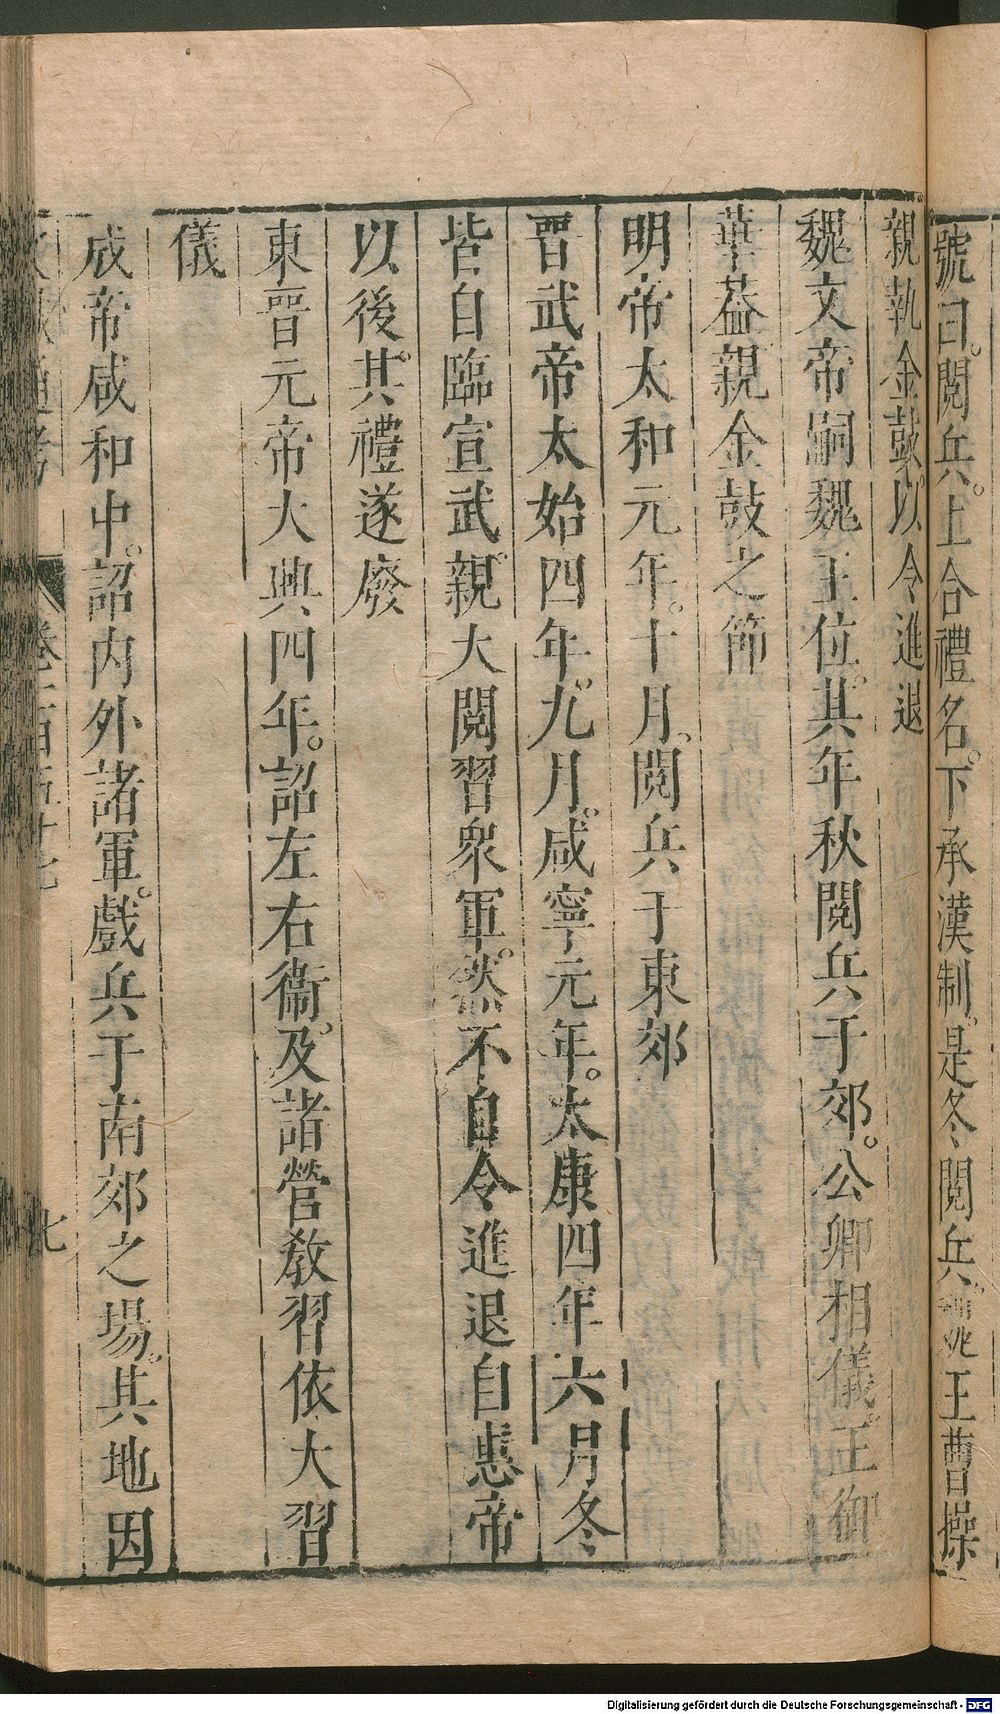 號曰。閱兵。上合禮名。下承漢制。是冬閱兵。魏王曹操
親執金鼓。以令進退
魏文帝嗣魏王位。其年秋閱兵于郊。公卿相儀。王御
華葢親金鼓之節
明帝太和元年。十月。閱兵于東郊
晉武帝太始四年。九月。咸寧元年。太康四年六月冬
皆自臨宣武。親大閱習衆軍。然不自令進退自惠帝
以後。其禮遂廢
東晉元帝大興四年。詔左右衞。及諸營敎習依大習
儀
成帝咸和中。詔内外諸軍。戲兵于南郊之場。其地因
通考 卷一百五十七 七
Digitalisierung gefördert durch die Deutsche Forschungsgemeinschaft - DFG